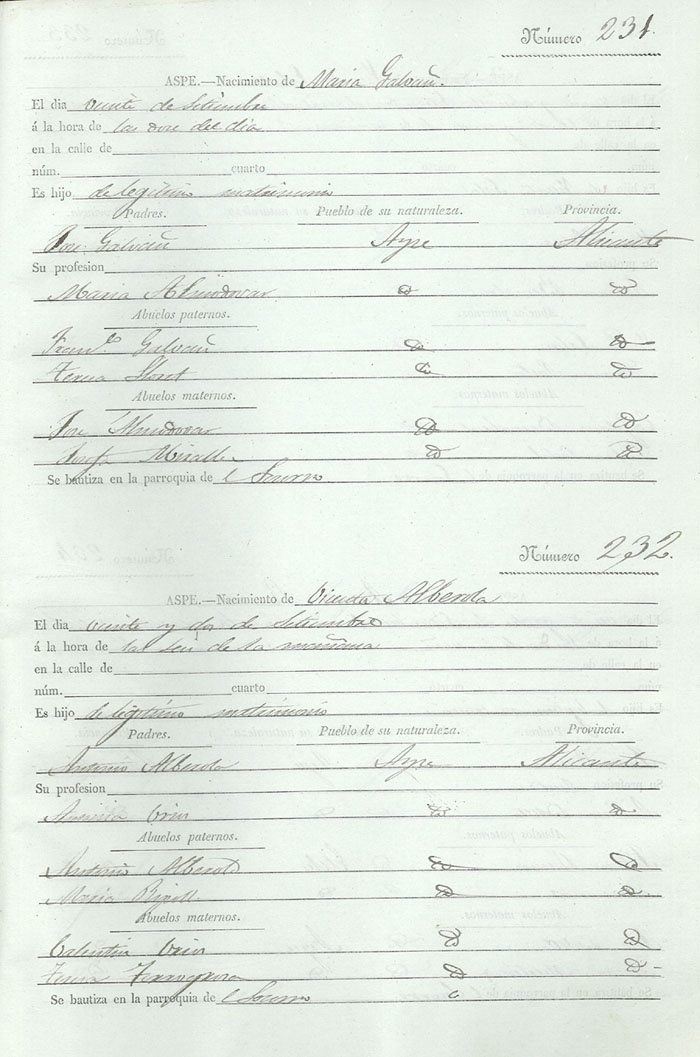 Número 231.
ASPE.—Nacimiento de Maria Galvañ.
El dia veinte de Setiembre
á la hora de las doce del dia
en la calle de
núm. cuarto
Es hijo de legitimo matrimonio
Padres. Pueblo de su naturaleza. Provincia.
Jose Galvañ Aspe Alicante
Su profesion
Maria Almodovar id id
Abuelos paternos.
Franco. Galvañ id id
Teresa Lloret id id
Abuelos maternos.
Jose Almodovar id id
Josefa Miralles id id
Se bautiza en la parroquia de el Socorro
Número 232.
ASPE.—Nacimiento de Vicenta Alberola
El dia veinte y dos de Setiembre
á la hora de las seis de la mañana
en la calle de
núm. cuarto
Es hijo de legitimo matrimonio
Padres. Pueblo de su naturaleza. Provincia.
Antonio Alberola Aspe Alicante
Su profesion
id id
Abuelos paternos.
Antonio Alberola id id
Maria id id
Abuelos maternos.
Valentin id id
Teresa id id
Se bautiza en la parroquia de el Socorro